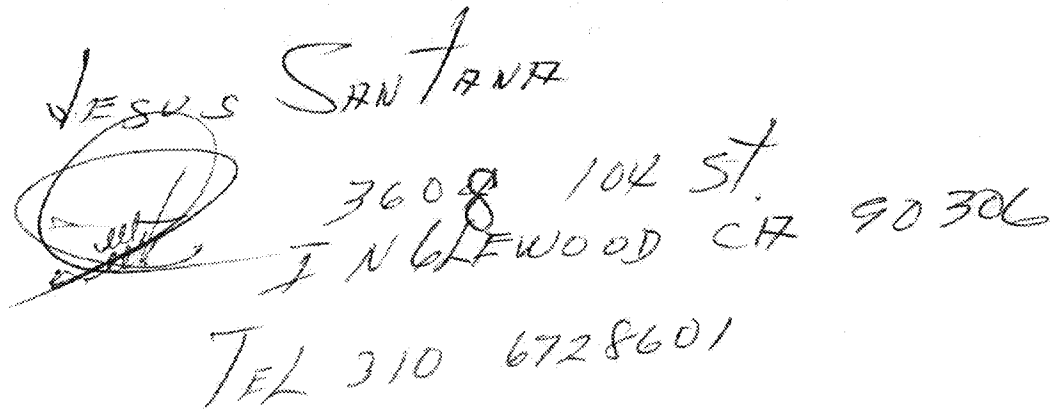 JESUS SANTANA
3608 104 St.
INGLEWOOD CA 90306
TEL 310 6728601